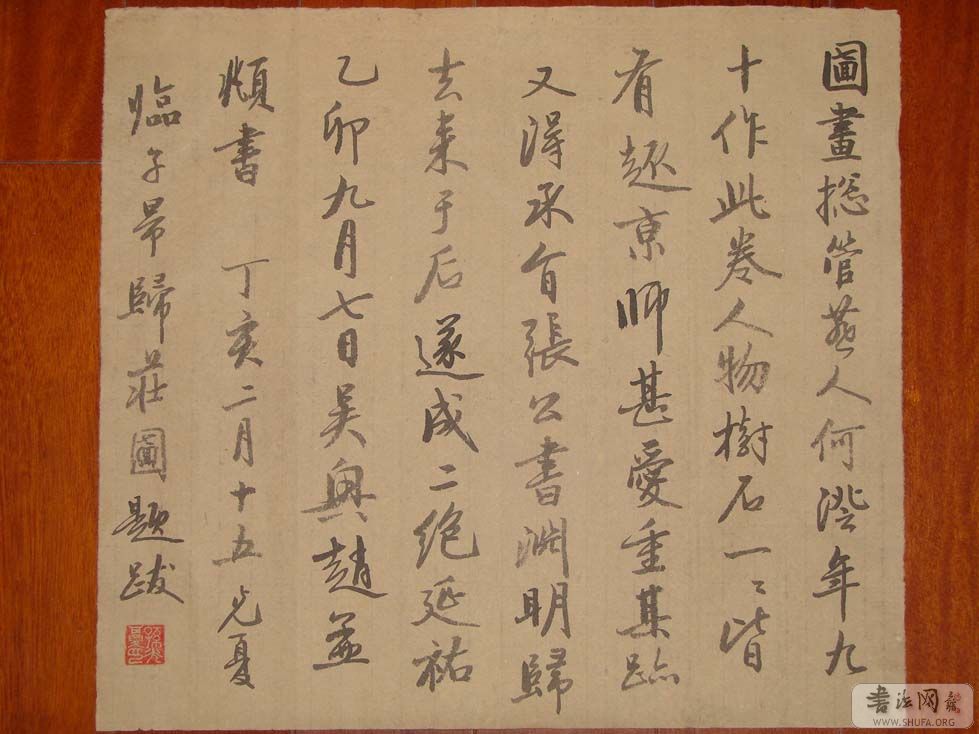 圖畫揔管燕人何澄年九
十作此卷人物樹石一〻皆
有趣京師甚愛重其跡
又得承旨張公書淵明歸
去来于后遂成二絶延祐
乙卯九月七日吴興趙孟
頫書 丁亥二月十五光夏
臨子昂歸莊圖題跋
書法网
WWW.SHUFA.ORG